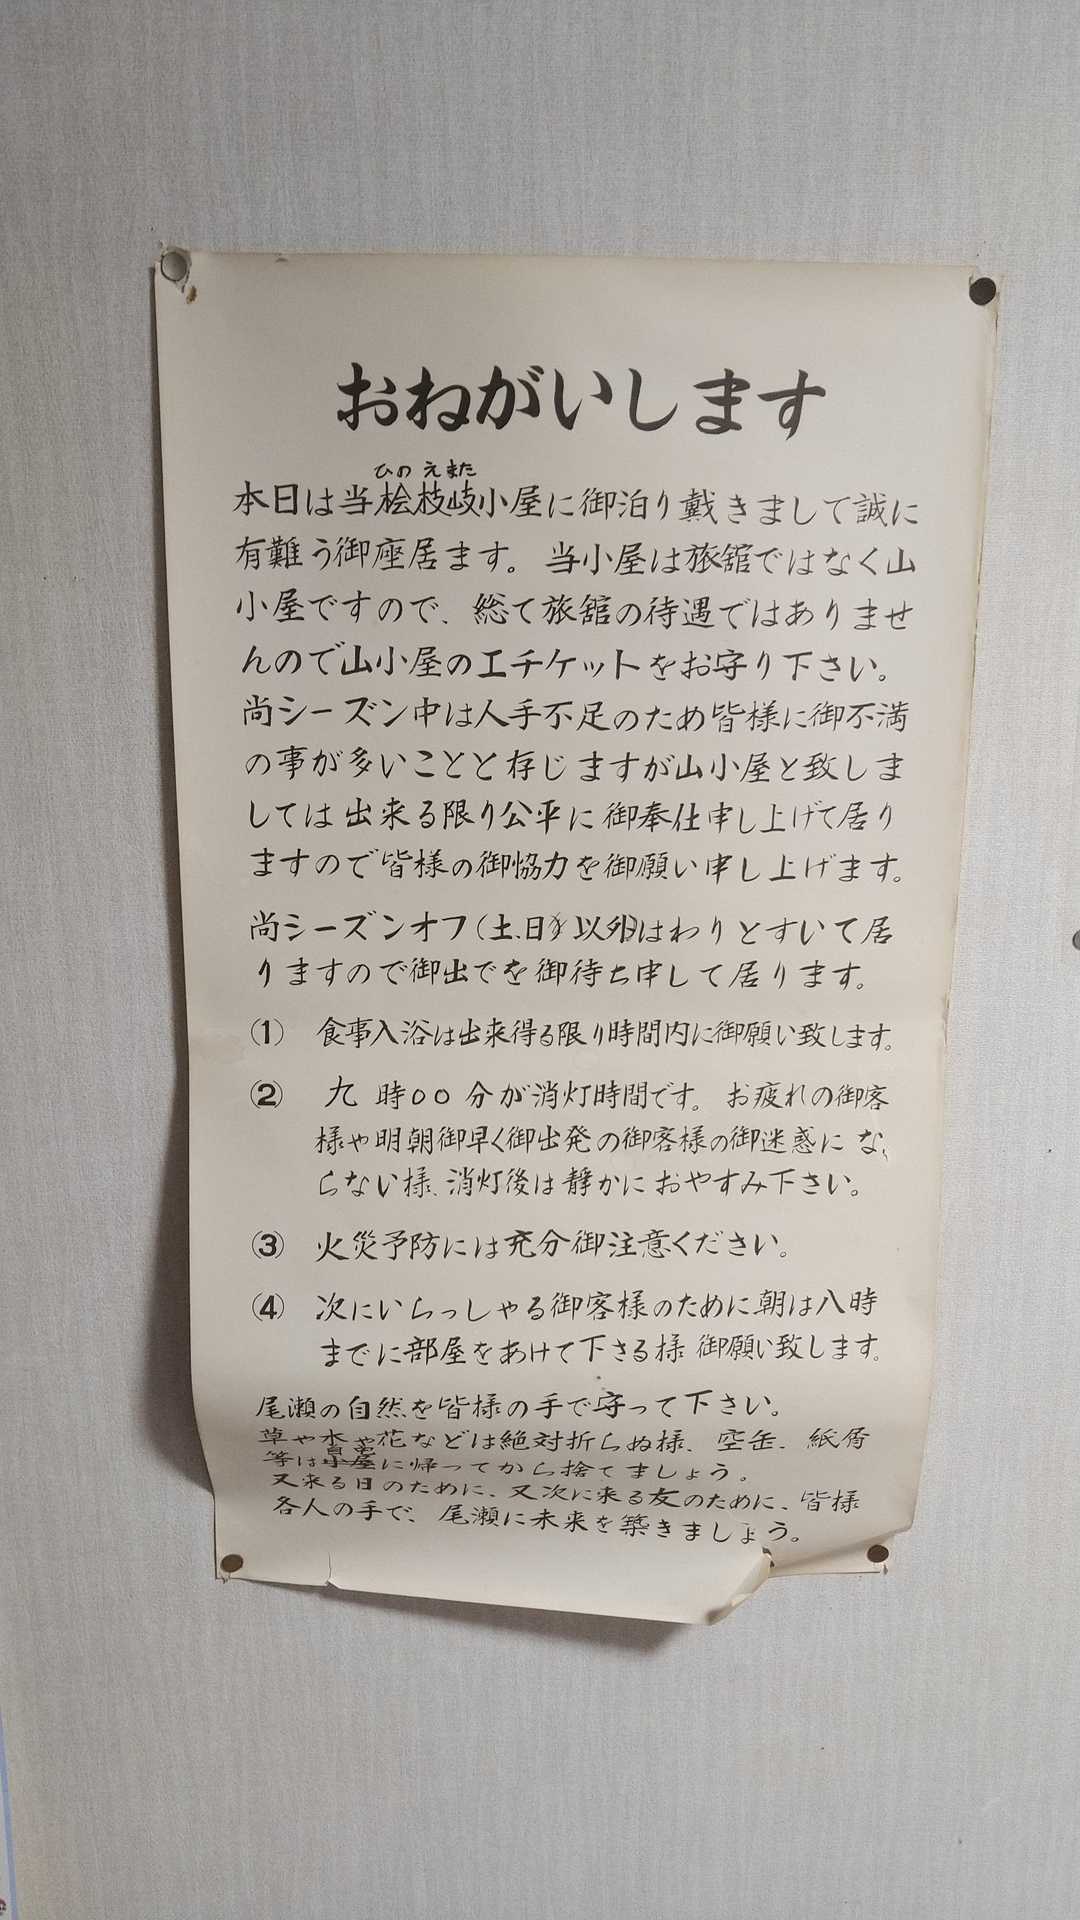 おねがいします
ひのえまた
本日は当桧枝岐小屋に御泊り戴きまして誠に
有難う御座居ます。当小屋は旅舘ではなく山
小屋ですので、総て旅舘の待遇ではありませ
んので山小屋のエチケットをお守り下さい。
尚シーズン中は人手不足のため皆様に御不満
の事が多いことと存じますが山小屋と致しま
しては出来る限り公平に御奉仕申し上げて居り
ますので皆様の御協力を御願い申し上げます。
尚シーズンオフ(土、日以外)はわりとすいて居
りますので御出でを御待ち申して居ります。
(1) 食事入浴は出来得る限り時間内に御願い致します。
(2) 九時００分が消灯時間です。お疲れの御客
様や明朝御早く御出発の御客様の御迷惑にな
らない様、消灯後は静かにおやすみ下さい。
(3) 火災予防には充分御注意ください。
(4) 次にいらっしゃる御客様のために朝は八時
までに部屋をあけて下さる様御願い致します。
尾瀬の自然を皆様の手で守って下さい。
草や木や花などは絶対折らぬ様、空缶、紙屑
自宅
等は小屋に帰ってから捨てましょう。
又来る日のために、又次に来る友のために、皆様
各人の手で、尾瀬に未来を築きましょう。